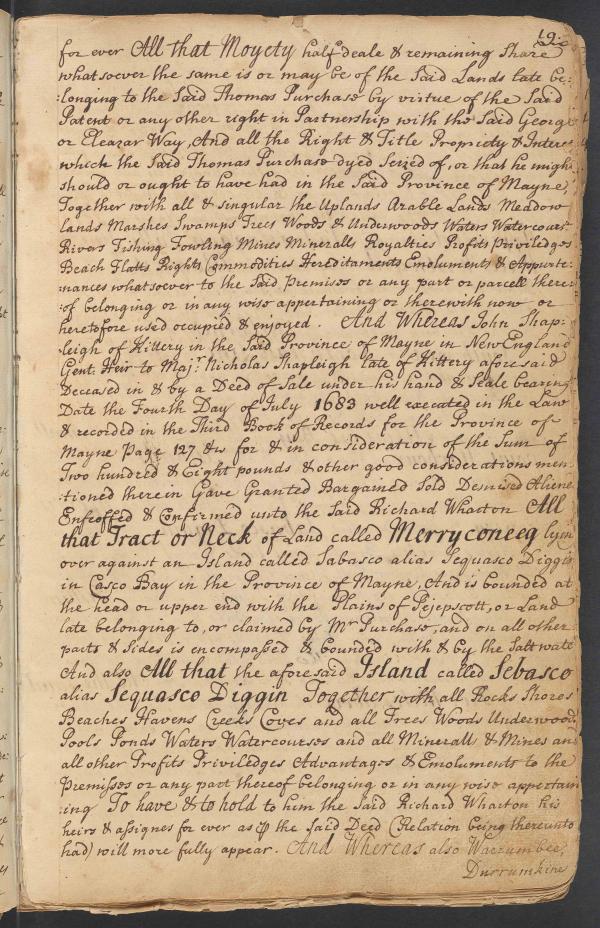 19.
for ever All that Moyety half deale & remaining Share
whatsoever the same is or may be of the Said Lands late be:
:longing to the Said Thomas Purchase by virtue of the Said
Patent or any other right in Partnership with the Said George
or Eleazar Way, And all the Right & Title Propriety & Interes
which the Said Thomas Purchase dyed Seized of, or that he might
should or ought to have had in the Said Province of Mayne,
Together with all & singular the Uplands Arable Lands Meadow
lands Marshes Swamps Trees Woods & Underwoods Waters Watercourse
Rivers Fishing Fowling Mines Mineralls Royalties Profits Priviledges
Beach Flatts Rights Commodities Hereditaments Emoluments & Appurte:
:nances whatsoever to the Said Premises or any part or parcell there:
:of belonging or in any wise appertaining or therewith now or
heretofore used occupied & enjoyed. And Whereas John Shap:
:leigh of Kittery in the Said Province of Mayne in New England
Gent. Heir to Majr. Nicholas Shapleigh late of Kittery aforesaid
Deceased in & by a Deed of Sale under his hand & Seale bearing
Date the Fourth Day of July 1683 well executed in the Law
& recorded in the Third Book of Records for the Province of
Mayne Page 127 &c for & in consideration of the Sum of
Two hundred & Eight pounds & other good considerations men
:tioned therein Gave Granted Bargained Sold Demised Aliene
Enfeoffed & Confirmed unto the Said Richard Wharton All
that Tract or Neck of Land called Merryconeeg lyin
over against an Island called Sabasco alias Sequasco Diggin
in Casco Bay in the Province of Mayne, And is bounded at
the head or upper end with the Plains of Pejepscott, or Land
late belonging to, or claimed by Mr Purchase, and on all other
parts & Sides is encompassed & bounded with & by the Salt wate
And also All that the aforesaid Island called Sebasco
alias Sequasco Diggin Together with all Rocks Shores
Beaches Havens Creeks Coves and all Trees Woods Underwoods
Pools Ponds Waters Watercourses and all Minerall & Mines and
all other Profits Priviledges Advantages & Emoluments to the
Premisses or any part thereof belonging or in any wise appertain
:ing To have & to hold to him the Said Richard Wharton his
heirs & assignes for ever as ꝑ the Said Deed (Relation being thereunto
had) will more fully appear. And Whereas also Warrumbee,
Durrumkine